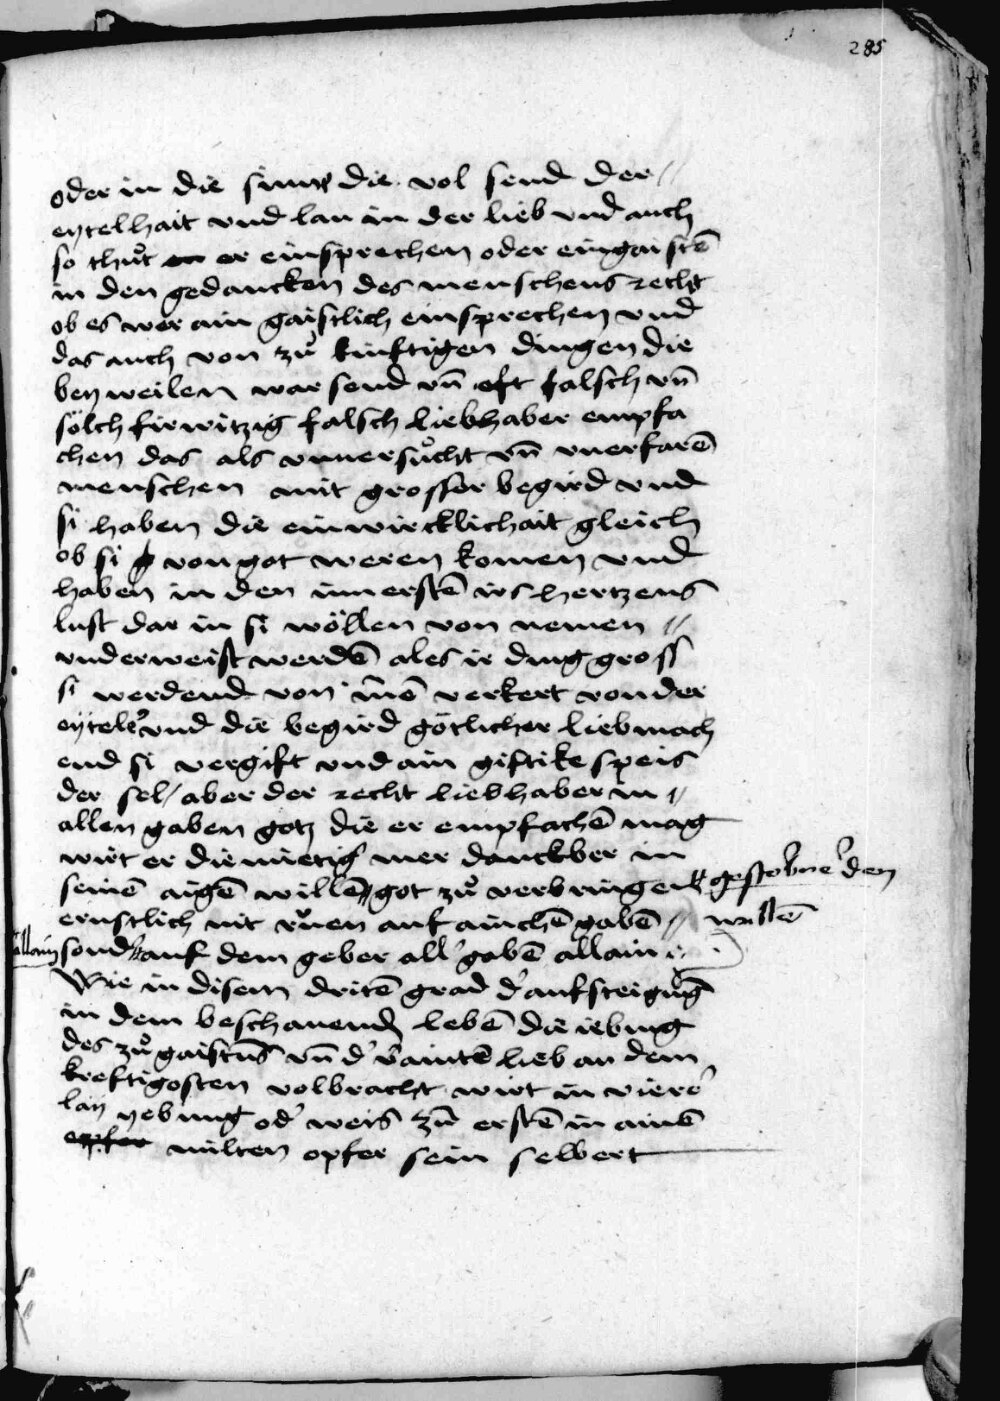 285
oder in die sinne die vol send der //
eytelhait vnd lau in der lieb vnd auch
so thuͦt er einsprechen oder eingaistē
in den gedancken des menschens recht
ob es wer ain gaistlich einsprechen vnd
das auch von zuͦ kinftigen dingen die
bey weilen war send vn̄ oft falsch vn̄
sölch firwitzig falsch liebhaber empfa
chen das als vnuersuͦcht vn̄ vnerfarē
menschen mit grosser begird vnd
si haben die einwircklichait gleich
ob si von got weren komen vnd
haben in den innerstē irs hertzens
lust dar in si wöllen von nemen //
vnderweist werdē ales ir ding gross
si werdend von verkert von der
eytelr̉ vnd die begird götlicher lieb mach
end si vergift vnd ain giftike speis
der sel / aber der recht liebhaber in //
allen gaben gotz die er empfachē mag
wirt er diemietig mer danckber in
seinē aigē willē got zuͦ verbringen gestorbne den
ernstlich nit ruͦen auf ainchē gabē // willē
allain sond' auf dem geber all' gabē allain
Wie in disem dritē grad d' aufsteigūg
in dem beschauend lebē die iebung
des zuͦ gaistūs vn̄ d' v'aintē lieb an dem
kreftigosten volbracht wirt in vierer̉
lay yebung od' weis zū erstē in ainē
opfer milten opfer sein selbert